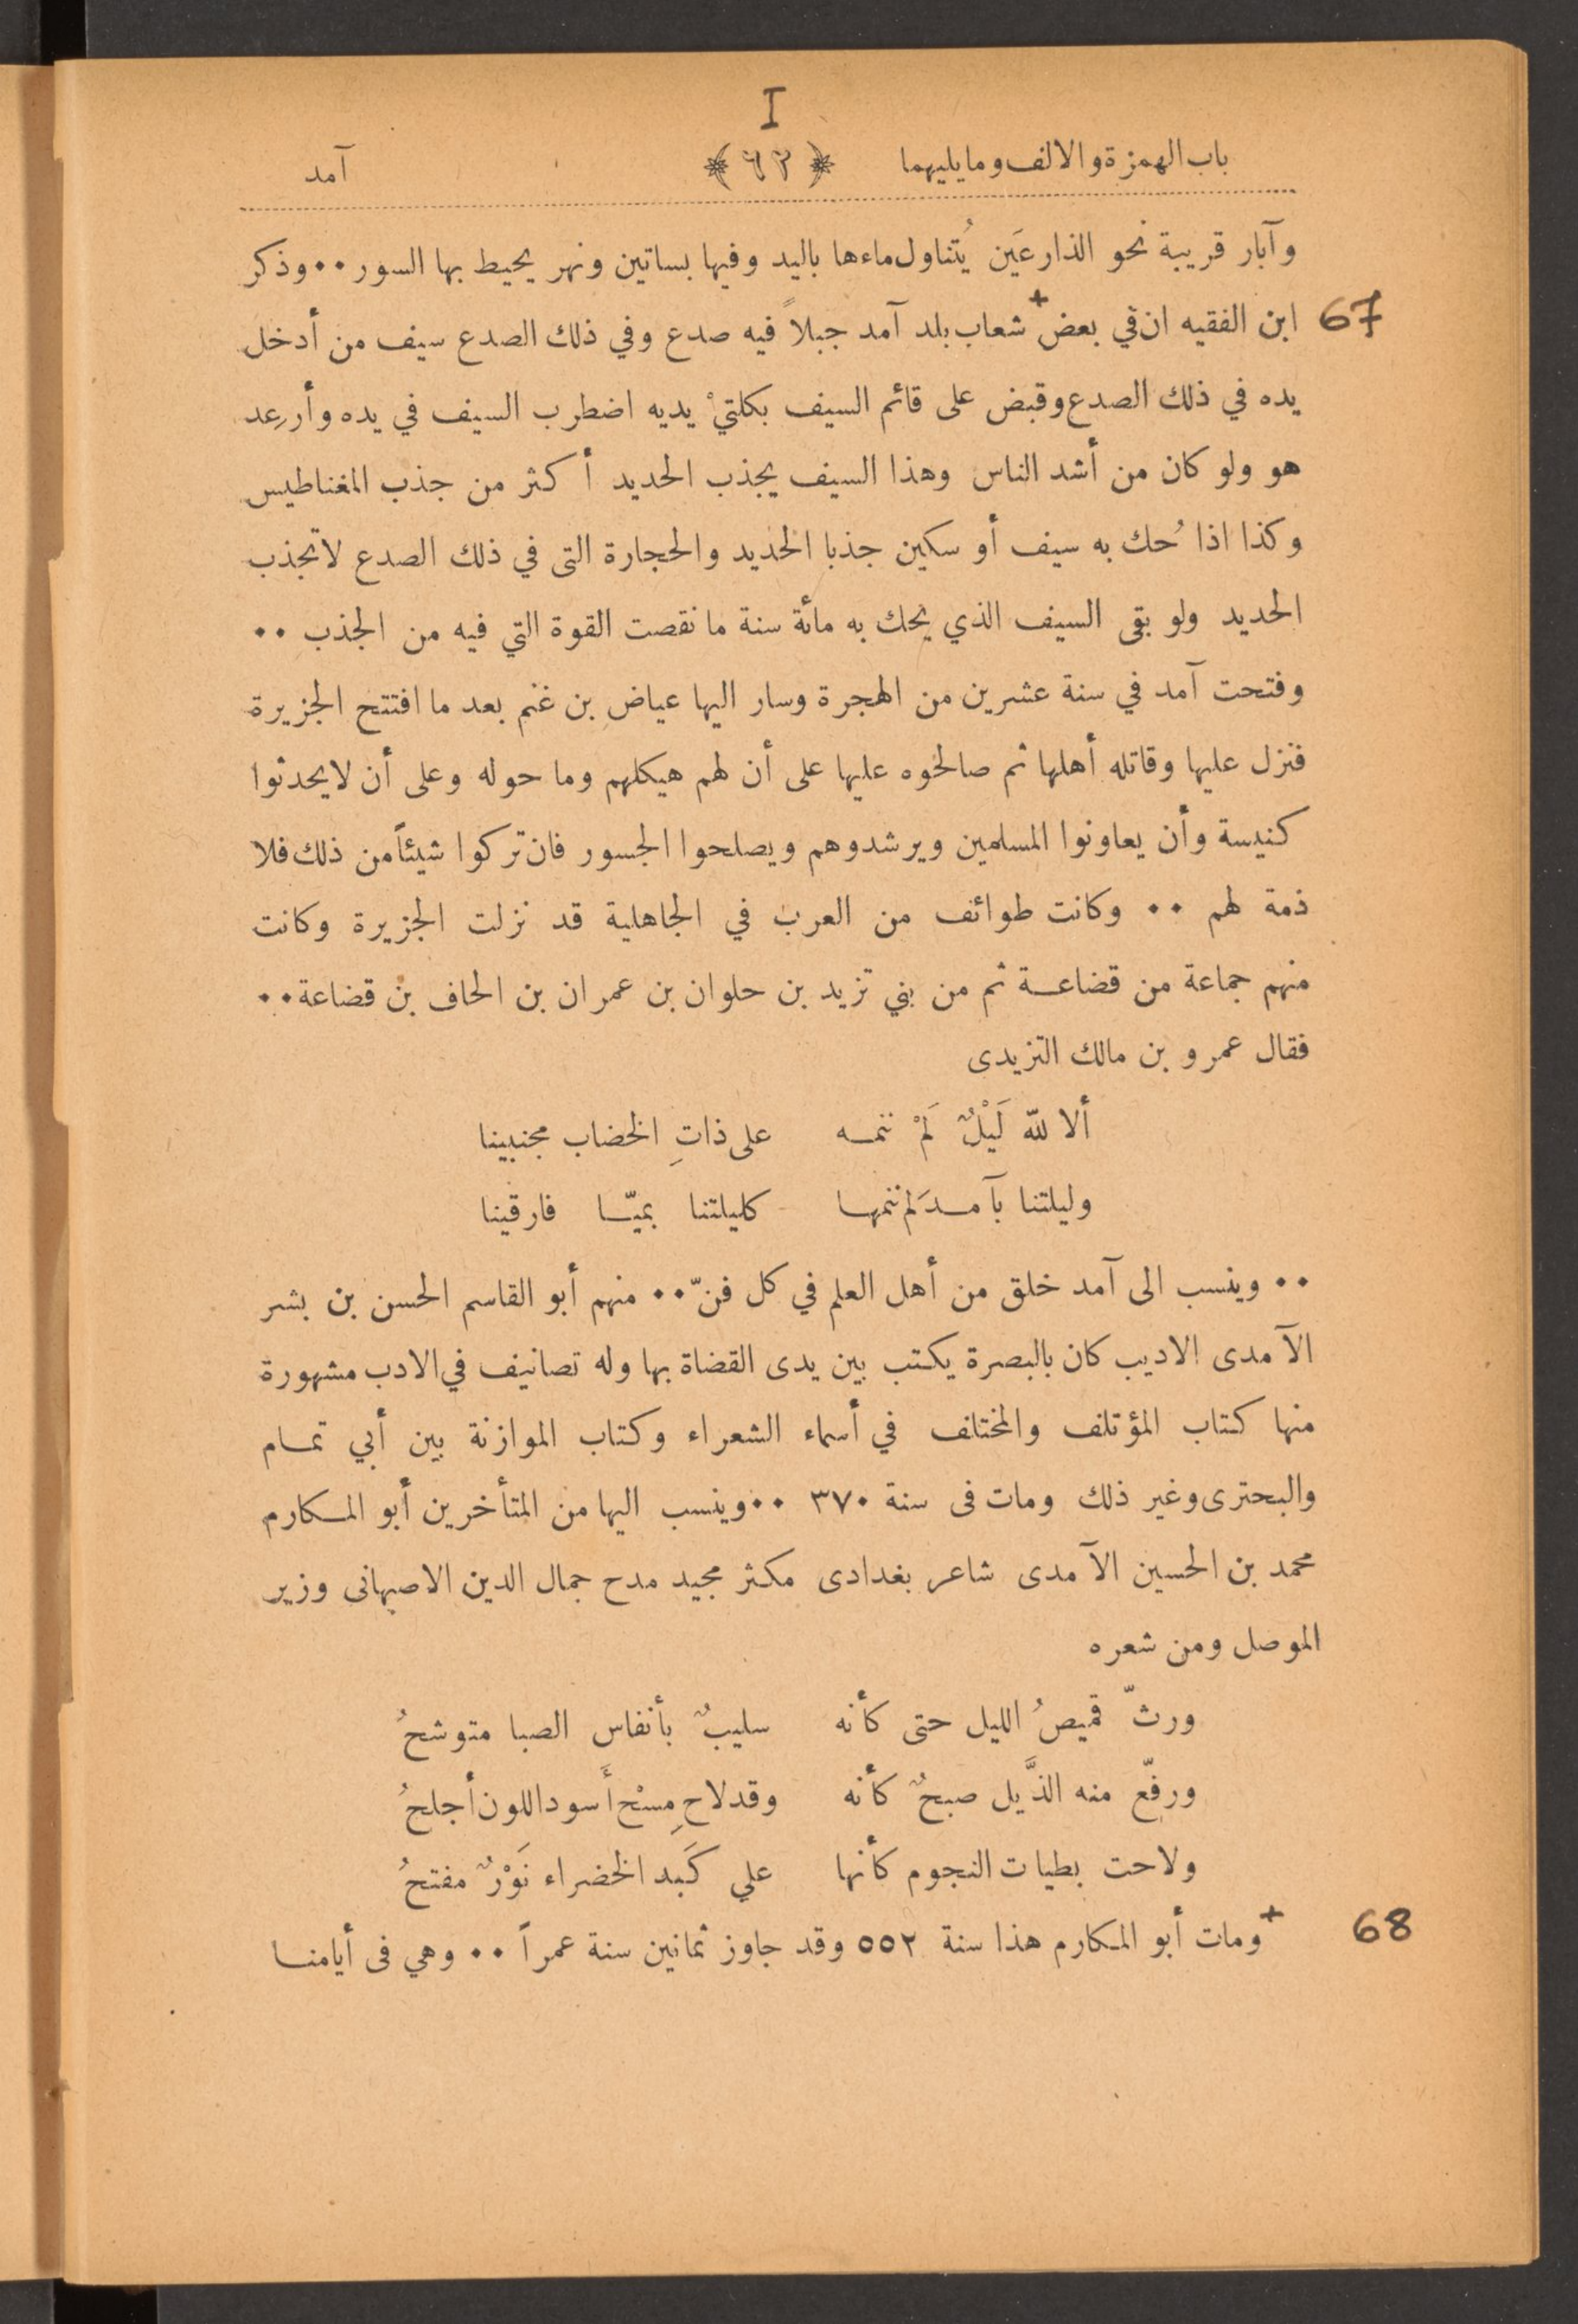 I
باب الهمزة والالف وما يليهما ﴿ ٦٢ ﴾ آمد
وآبار قريبة نحو الذارعَين يُتناول ماءها باليد وفيها بساتين ونهر يحيط بها السور ٠٠ وذكر
67 ابن الفقيه ان في بعض + شعاب بلد آمد جبلاً فيه صدع وفي ذلك الصدع سيف من أدخل
يده في ذلك الصدع وقبض على قائم السيف بكلتيْ يديه اضطرب السيف في يده وأُرعِد
هو ولو كان من أشد الناس وهذا السيف يجذب الحديد أكثر من جذب المغناطيس
وكذا اذا حُك به سيف أو سكين جذبا الحديد والحجارة التى في ذلك الصدع لا تجذب
الحديد ولو بقى السيف الذي يحك به مائة سنة ما نقصت القوة التي فيه من الجذب ٠٠
وفتحت آمد في سنة عشرين من الهجرة وسار اليها عياض بن غنم بعد ما افتتح الجزيرة
فنزل عليها وقاتله أهلها ثم صالحوه عليها على أن لهم هيكلهم وما حوله وعلى أن لا يحدثوا
كنيسة وأن يعاونوا المسلمين ويرشدوهم ويصلحوا الجسور فان تركوا شيئاً من ذلك فلا
ذمة لهم ٠٠ وكانت طوائف من العرب في الجاهلية قد نزلت الجزيرة وكانت
منهم جماعة من قضاعة ثم من بني تزيد بن حلوان بن عمران بن الحاف بن قضاعة ٠٠
فقال عمرو بن مالك التزيدى
ألا لله لَيْلٌ لَمْ ننمه على ذاتِ الخضاب مجنبينا
وليلتنا بآمدَ لم ننمها كليلتنا بميّا فارقينا
٠٠ وينسب الى آمد خلق من أهل العلم في كل فنّ ٠٠ منهم أبو القاسم الحسن بن بشر
الآمدى الاديب كان بالبصرة يكتب بين يدى القضاة بها وله تصانيف في الادب مشهورة
منها كتاب المؤتلف والمختلف في أسماء الشعراء وكتاب الموازنة بين أبي تمام
والبحترى وغير ذلك ومات فى سنة ٣٧٠ ٠٠ وينسب اليها من المتأخرين أبو المكارم
محمد بن الحسين الآمدى شاعر بغدادى مكثر مجيد مدح جمال الدين الاصبهانى وزير
الموصل ومن شعره
ورثّ قميصُ الليل حتى كأنه سليبٌ بأنفاس الصبا متوشحُ
ورفّع منه الذَّيل صبحٌ كأنه وقد لاح مِسْح أَسود اللون أجلحُ
ولاحت بطيات النجوم كأنها علي كَبد الخضراء نَوْرٌ مفتحُ
68 + ومات أبو المكارم هذا سنة ٥٥٢ وقد جاوز ثمانين سنة عمراً ٠٠ وهي فى أيامنا